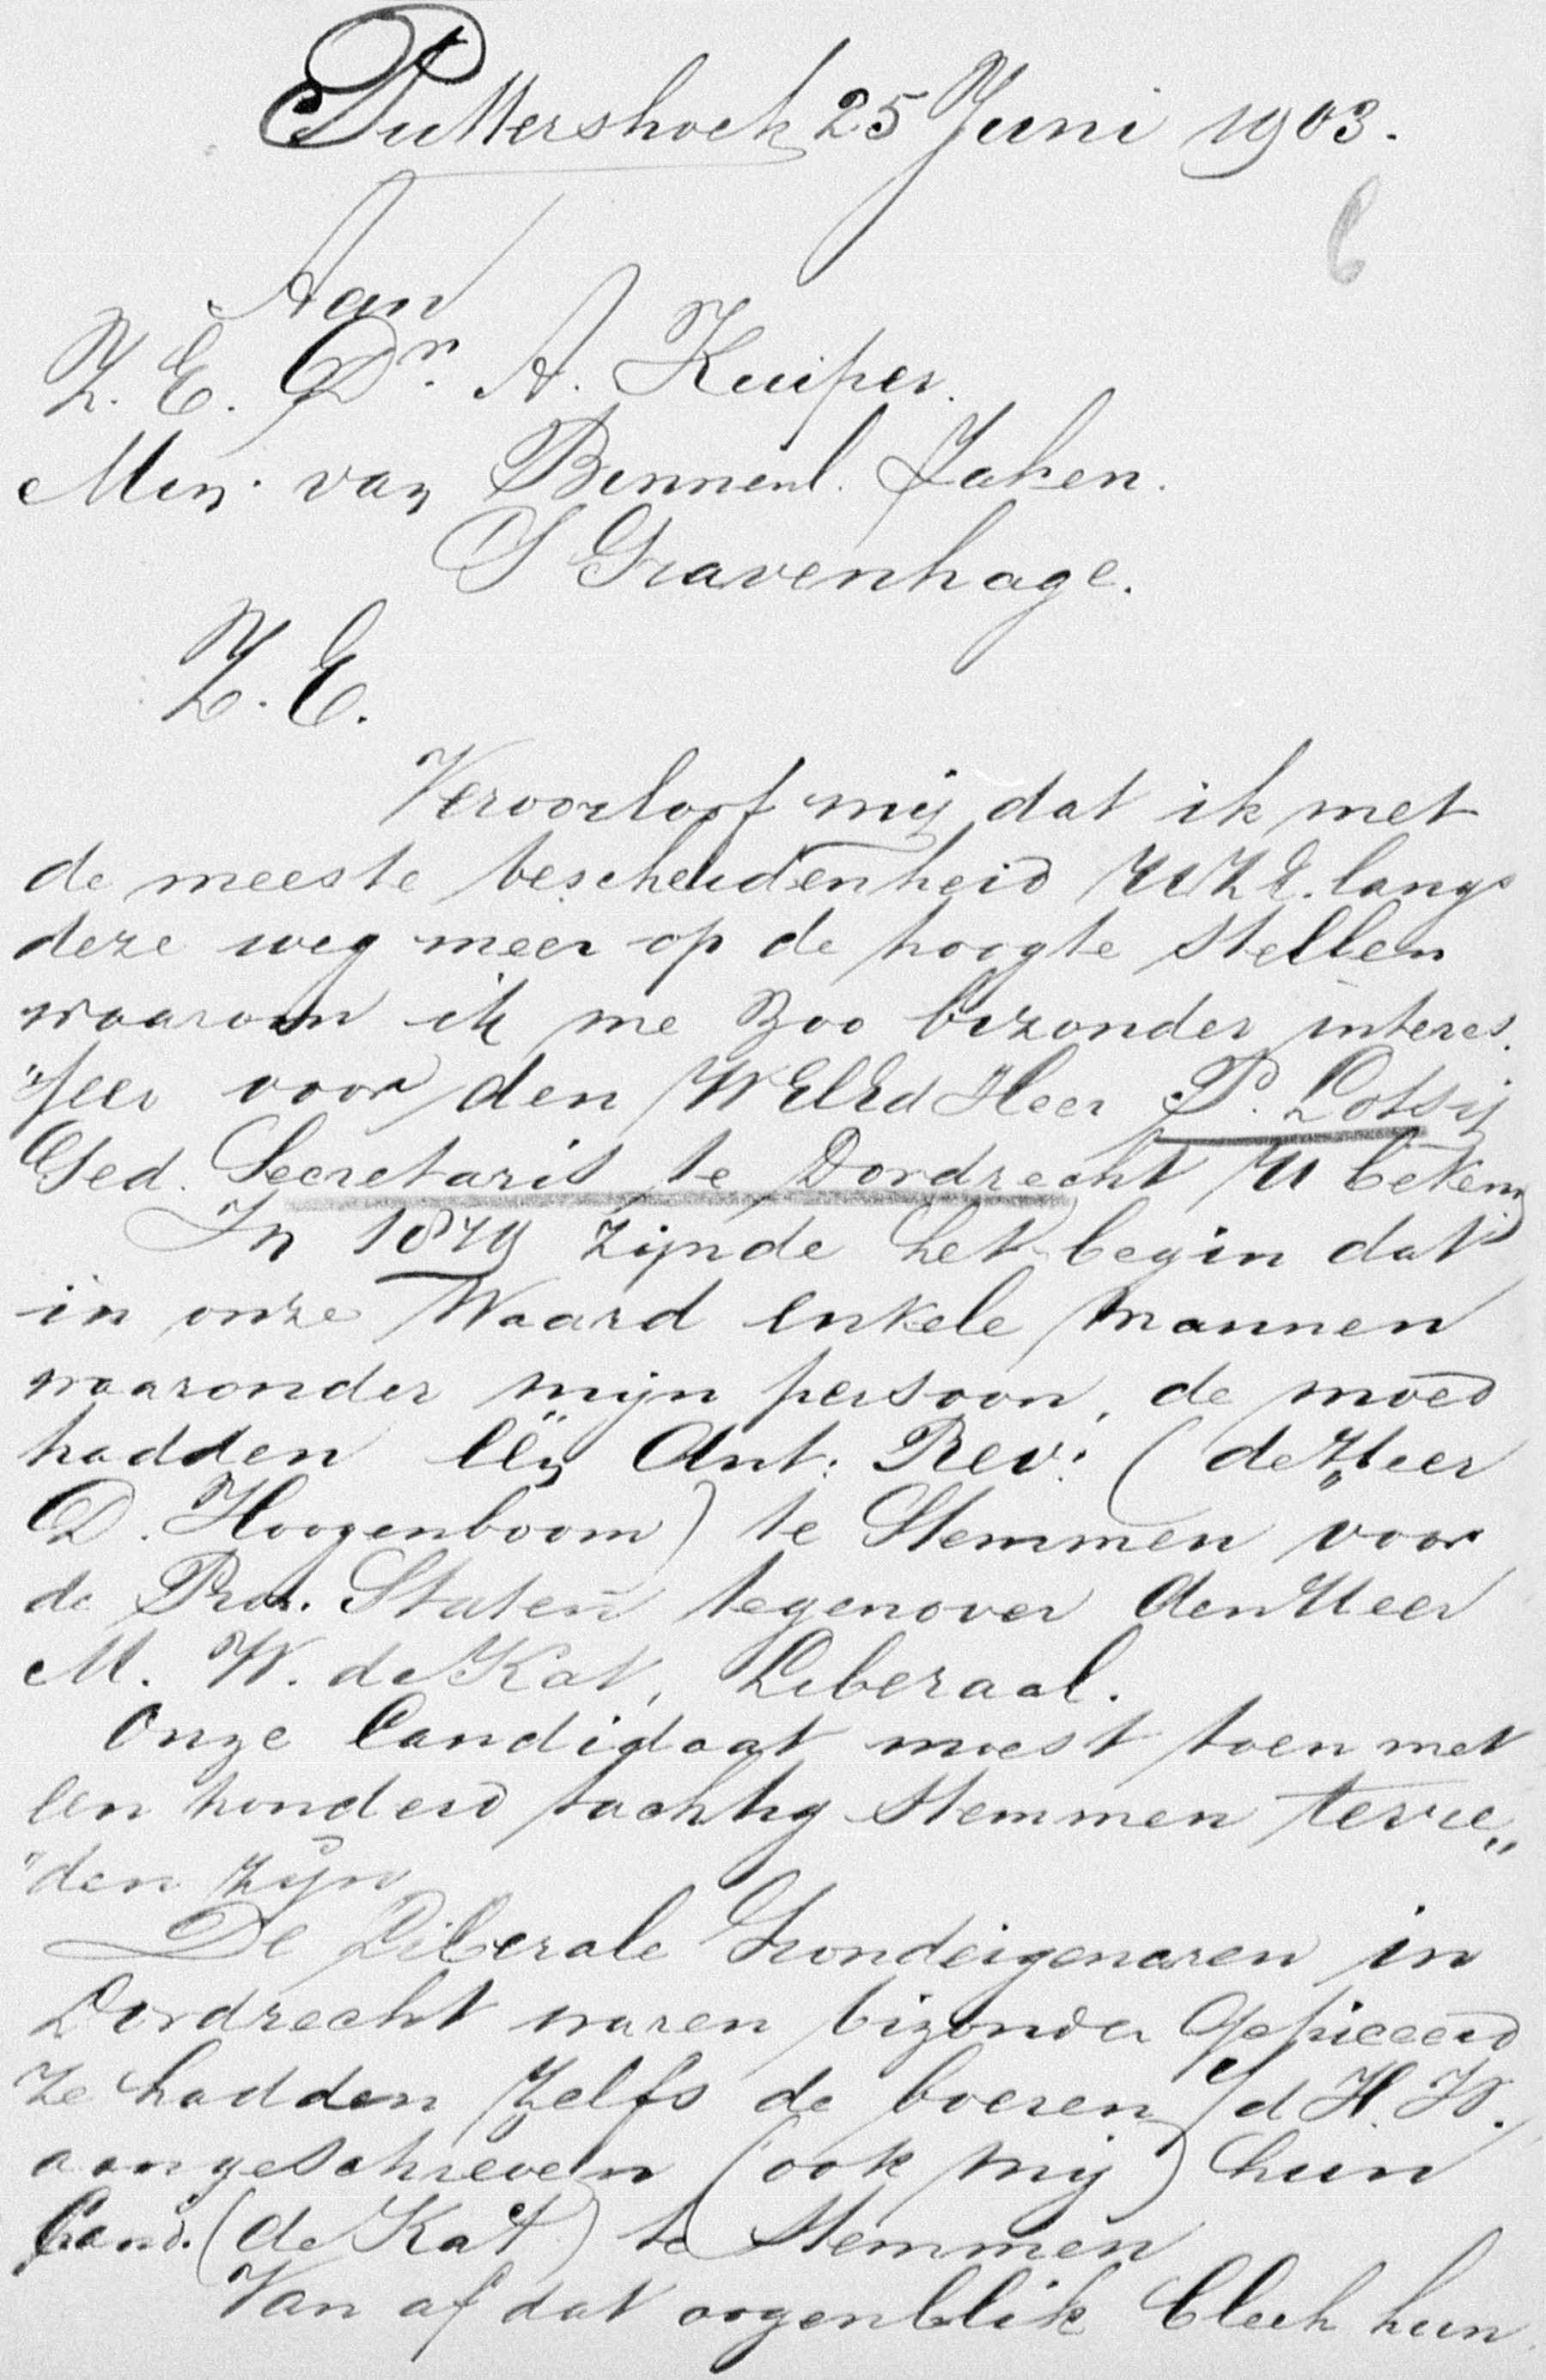 Puttershoek 25 Juni 1903.
6
Aan
Z. E. Dr. A. Kuiper.
Min. van Binnenl. Zaken.
S Gravenhage.
Z. E.
Veroorloof mij dat ik met
de meeste bescheidenheid UZE. langs
deze weg meer op de hoogte stellen
waarom ik me zoo bizonder interes.
"seer voor den WelEd Heer P. Lotsij
Ged. Secretaris te Dordrecht U bekend
In 1879 zijnde het begin dat
in onze Waard enkele mannen
waaronder mijn persoon, de moed
hadden één Ant: Rev: (de Heer
D. Hoogenboom) te Stemmen voor
de Prov. Staten tegenover den Heer
M. W. de Kat, Liberaal.
Onze Candidaat moest toen met
een honderd tachtig Stemmen tevre„
"den zijn
De Liberale Grondeigenaren in
Dordrecht waren bizonder Gepiceerd
ze hadden zelfs de boeren /d H. W.
aangeschreven (ook mij) hun
Cand. (de Kat) te Stemmen
Van af dat oogenblik bleek hun